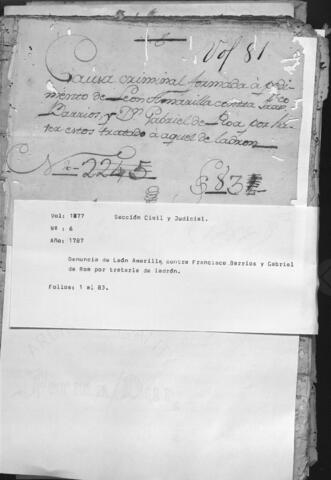 Vol 81
Causa criminal formada à pedi
mento de Leon Amarilla contra Fran.co
Barrios, y Dn Gabriel de Roa por ha
ver estos tratado à aquel de ladron
No 2245
Vol: 1877 Sección Civil y Judicial.
Nº: 6
Año: 1787
Denuncia de León Amarilla contra Francisco Barrios y Gabriel
de Roa por tratarle de ladrón.
Folios: 1 al 83.